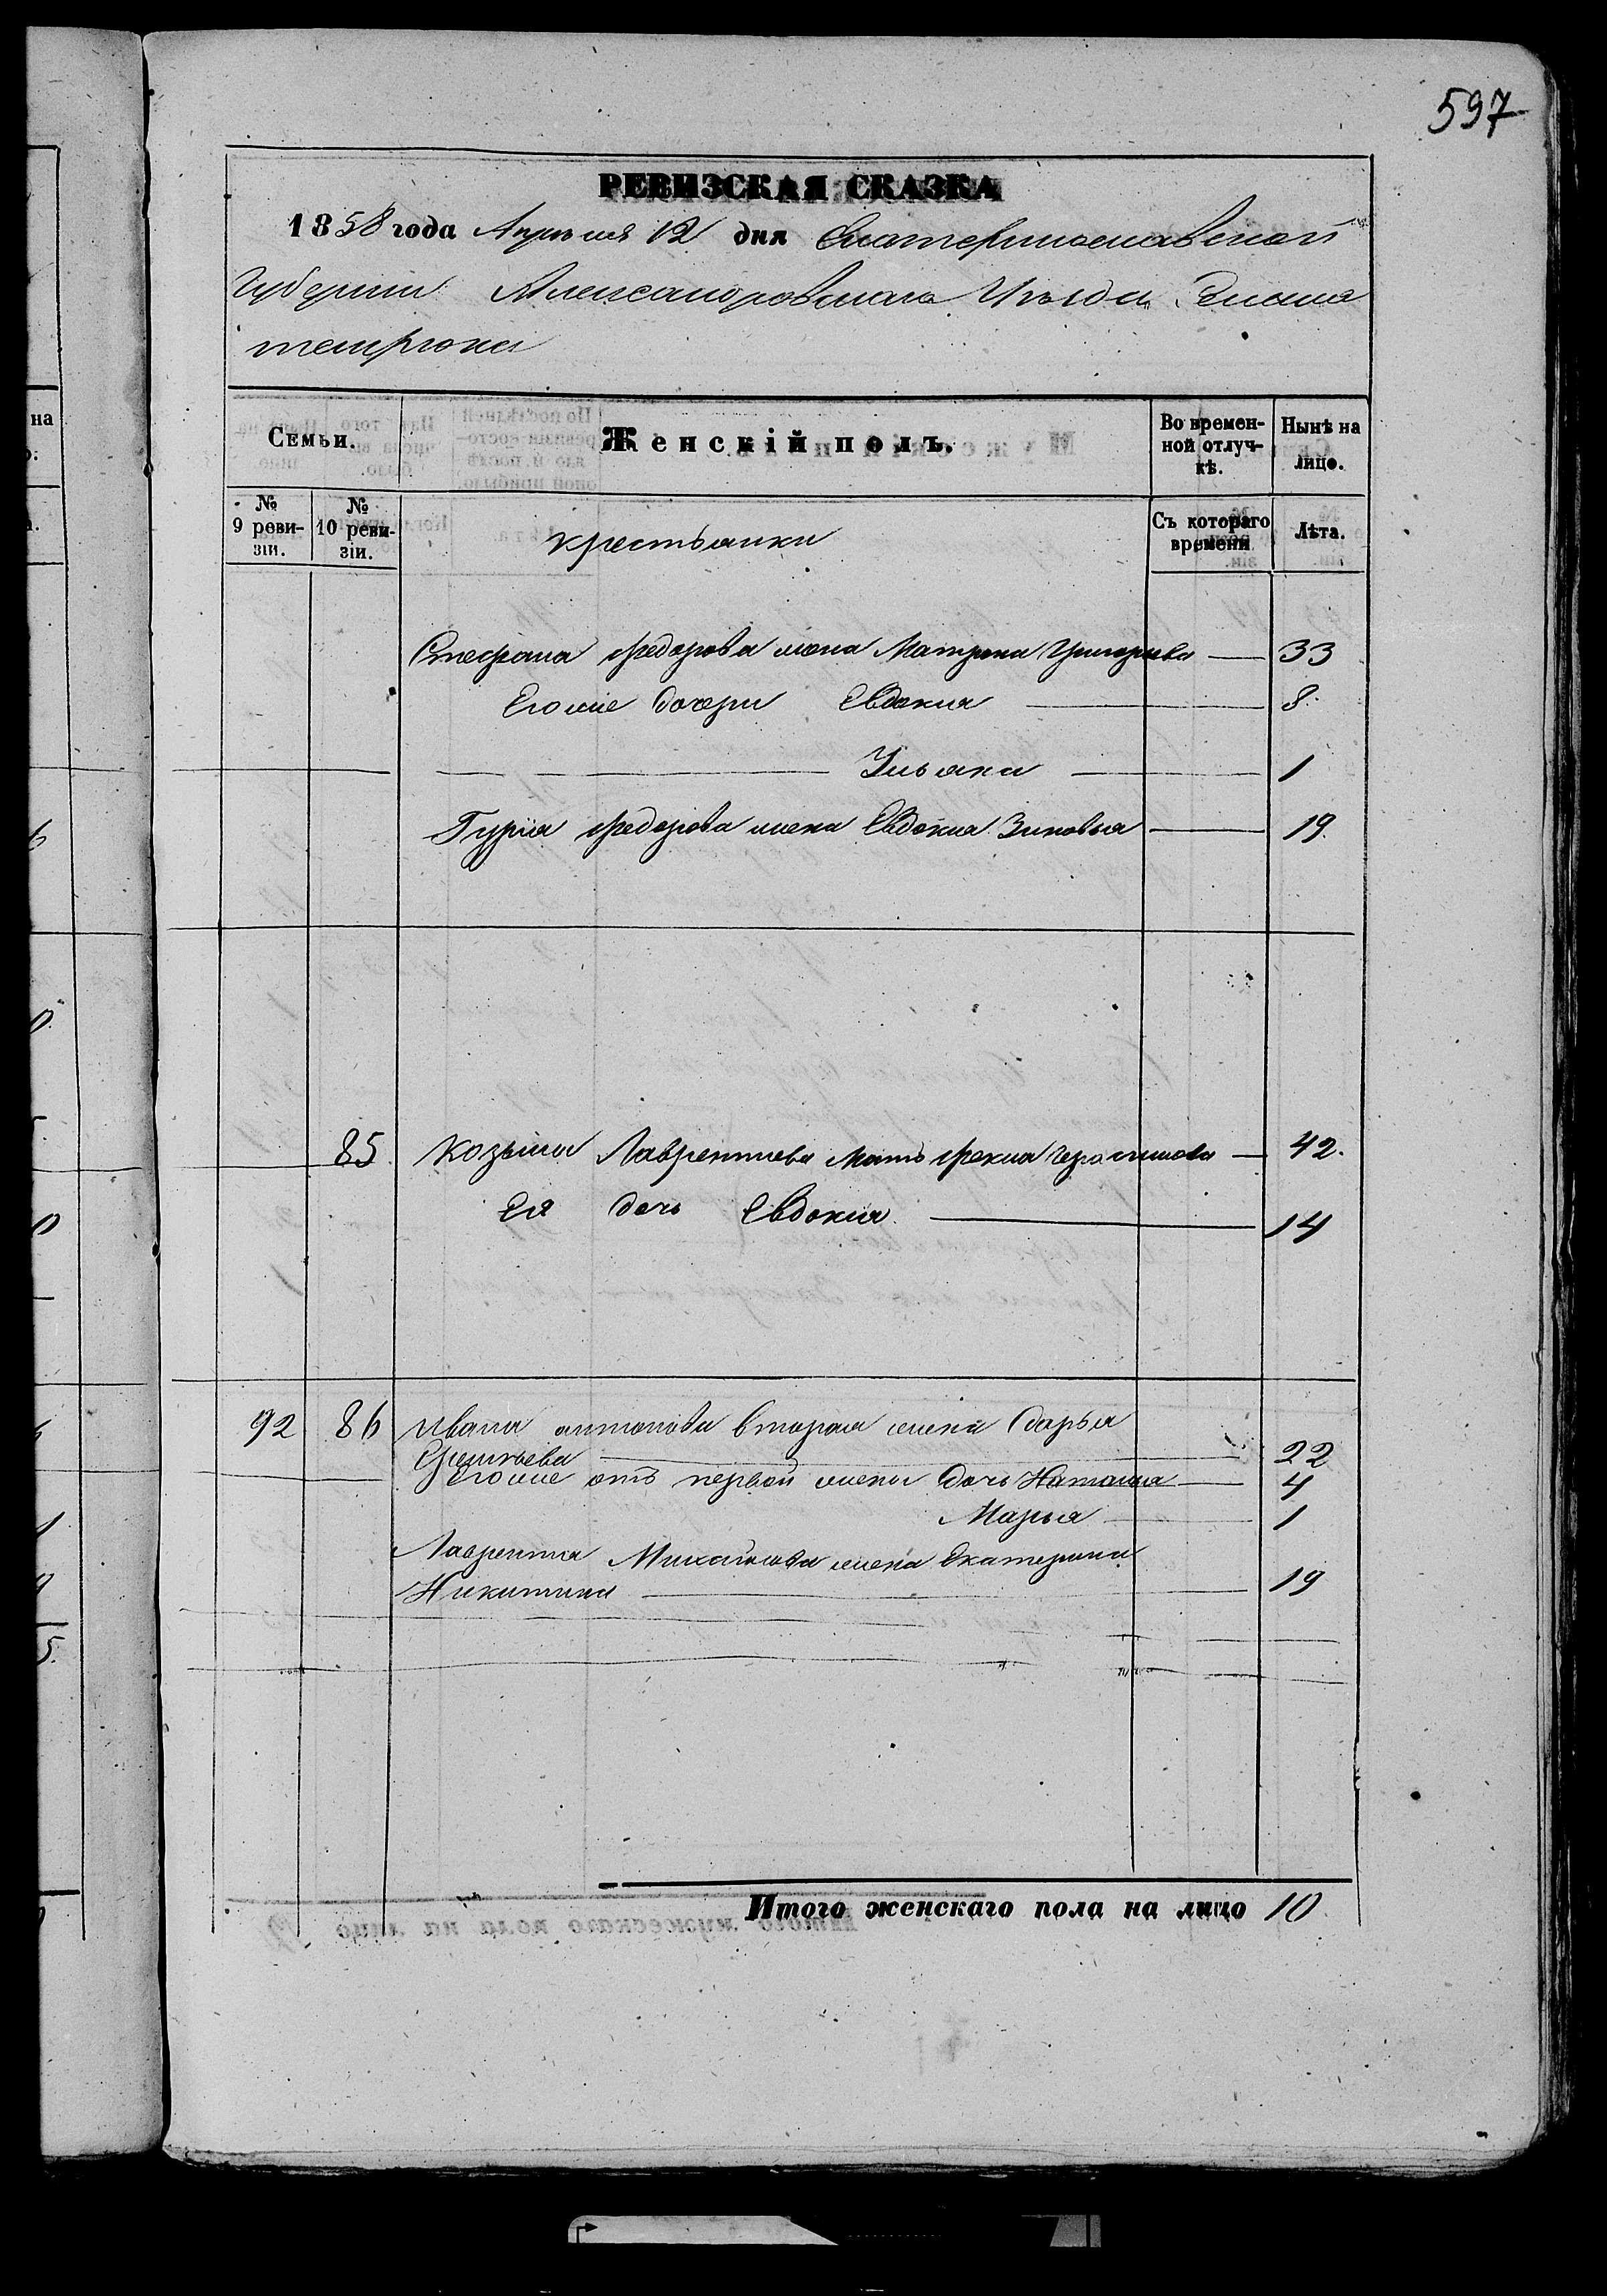 597
РЕВИЗСКАЯ СКАЗКА
1858 года Апреля 12 дня Екатеринославской
Губернии Александровскаго Уезда Села
темрюка
Семьи.
Женскій полъ.
Во времен-
ной отлуч-
кѣ.
Нынѣ на
лицо.
№
9 реви-
зіи.
№
10 реви-
зіи.
крестьянки
Съ котораго
времени
Лѣта.
Стефана Федорова жена Матрена Григорьева 33
Его же дочери Евдокия 8
Ульяна 1
Гурия Федорова жена Евдокия Зиновья 19
85 Козьмы Лаврентиева мать Фекла Герасимова 42.
Ея дочь Евдокия 14
92 86 Ивана антонова вторая жена Дарья
22
Его же отъ первой жены дочь Наталья 4
Марья 1
Лаврентия Михайлова жена Екатерина
Никитина 19
Итого женскаго пола на лицо 10